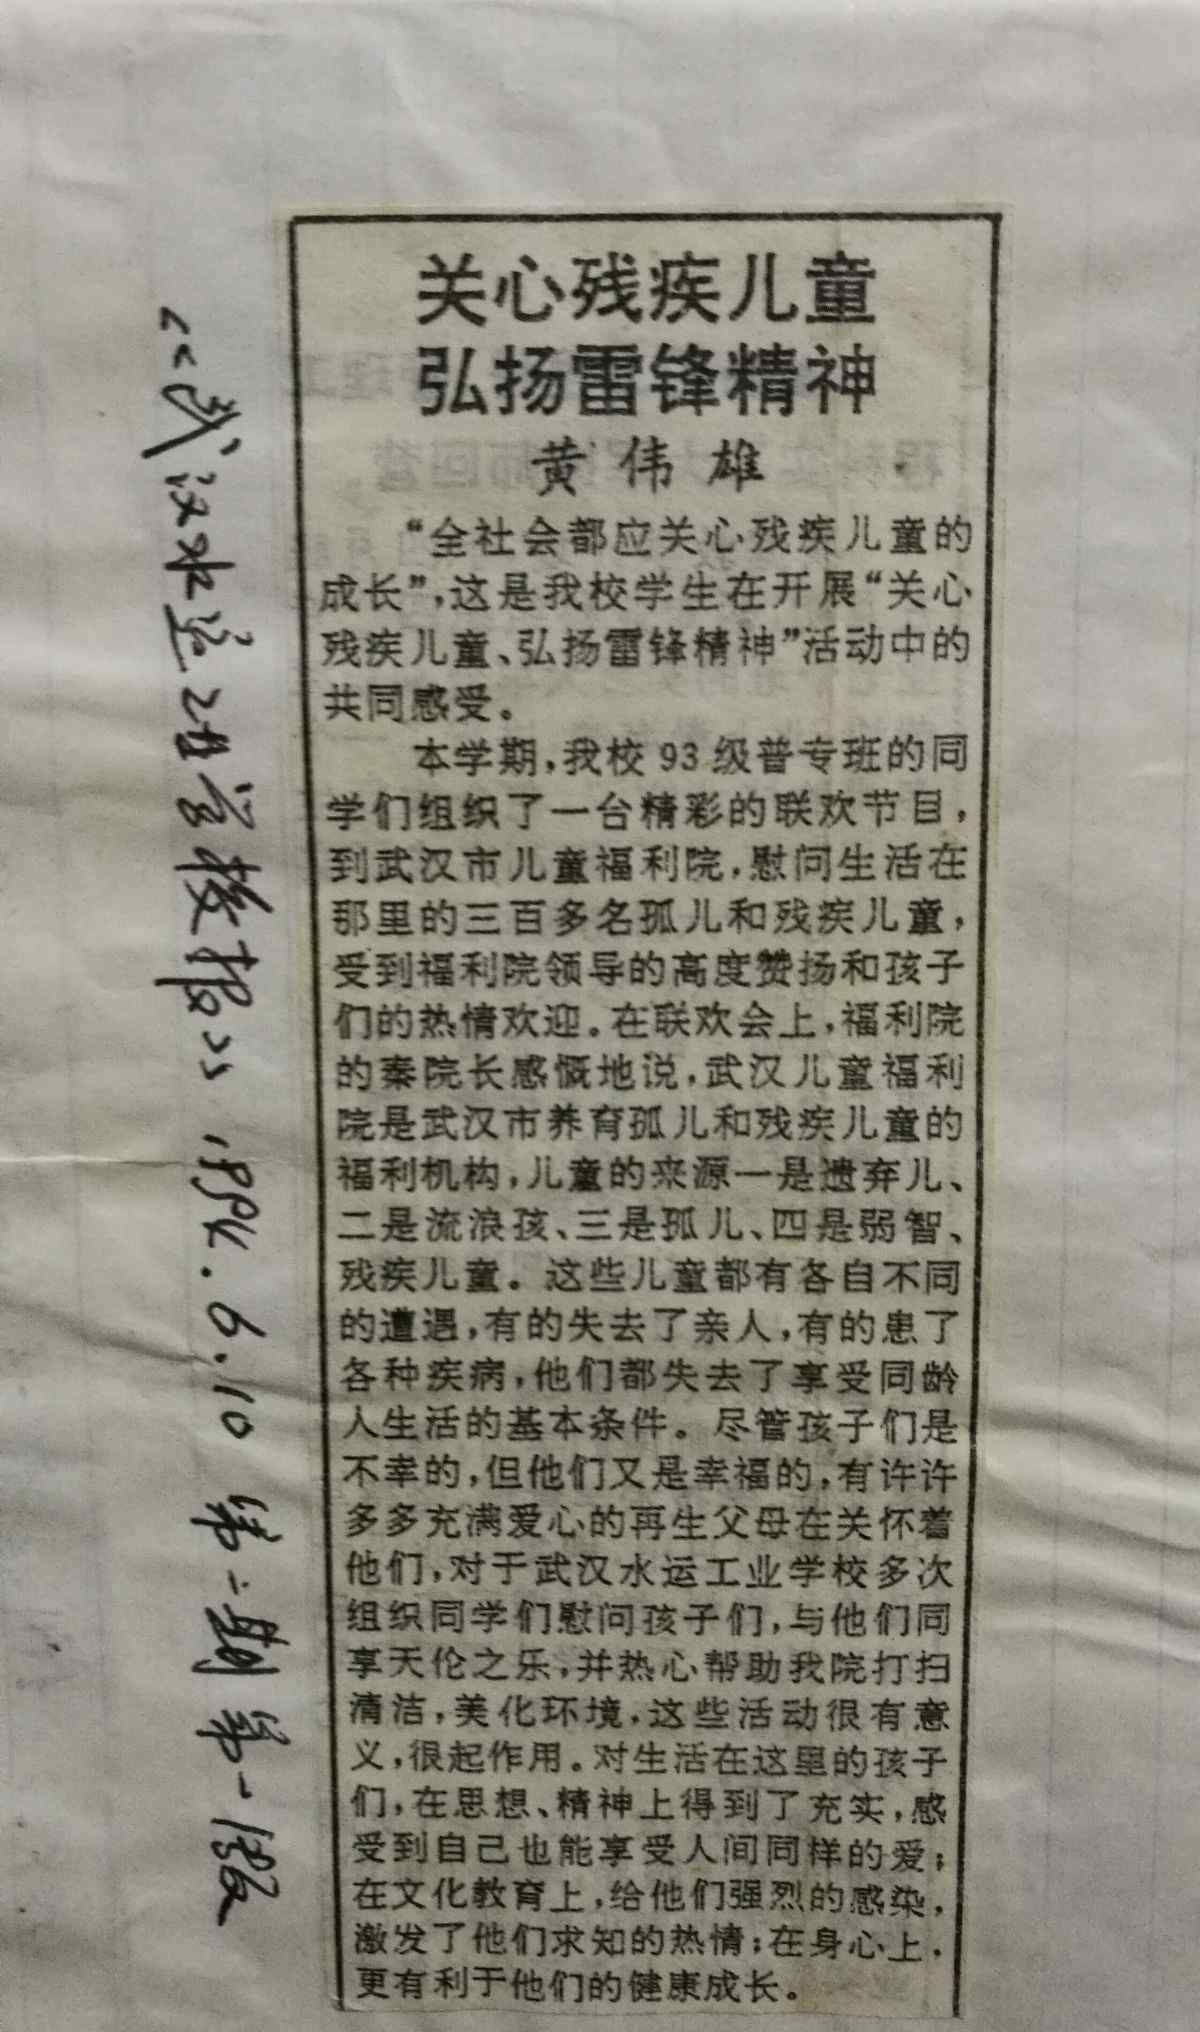 关心残疾儿童
弘扬雷锋精神
黄伟雄
“全社会都应关心残疾儿童的
成长”，这是我校学生在开展“关心
残疾儿童、弘扬雷锋精神”活动中的
共同感受。
本学期，我校93级普专班的同
学们组织了一台精彩的联欢节目，
到武汉市儿童福利院，慰问生活在
那里的三百多名孤儿和残疾儿童，
受到福利院领导的高度赞扬和孩子
们的热情欢迎。在联欢会上，福利院
的秦院长感慨地说，武汉儿童福利
院是武汉市养育孤儿和残疾儿童的
福利机构，儿童的来源一是遗弃儿、
二是流浪孩、三是孤儿、四是弱智、
残疾儿童。这些儿童都有各自不同
的遭遇，有的失去了亲人，有的患了
各种疾病，他们都失去了享受同龄
人生活的基本条件。尽管孩子们是
不幸的，但他们又是幸福的，有许许
多多充满爱心的再生父母在关怀着
他们，对于武汉水运工业学校多次
组织同学们慰问孩子们，与他们同
享天伦之乐，并热心帮助我院打扫
清洁，美化环境，这些活动很有意
义，很起作用。对生活在这里的孩子
们，在思想、精神上得到了充实，感
受到自己也能享受人间同样的爱；
在文化教育上，给他们强烈的感染，
激发了他们求知的热情；在身心上，
更有利于他们的健康成长。
《武汉水运工业学校报》，1994.6.10 第二期第一版